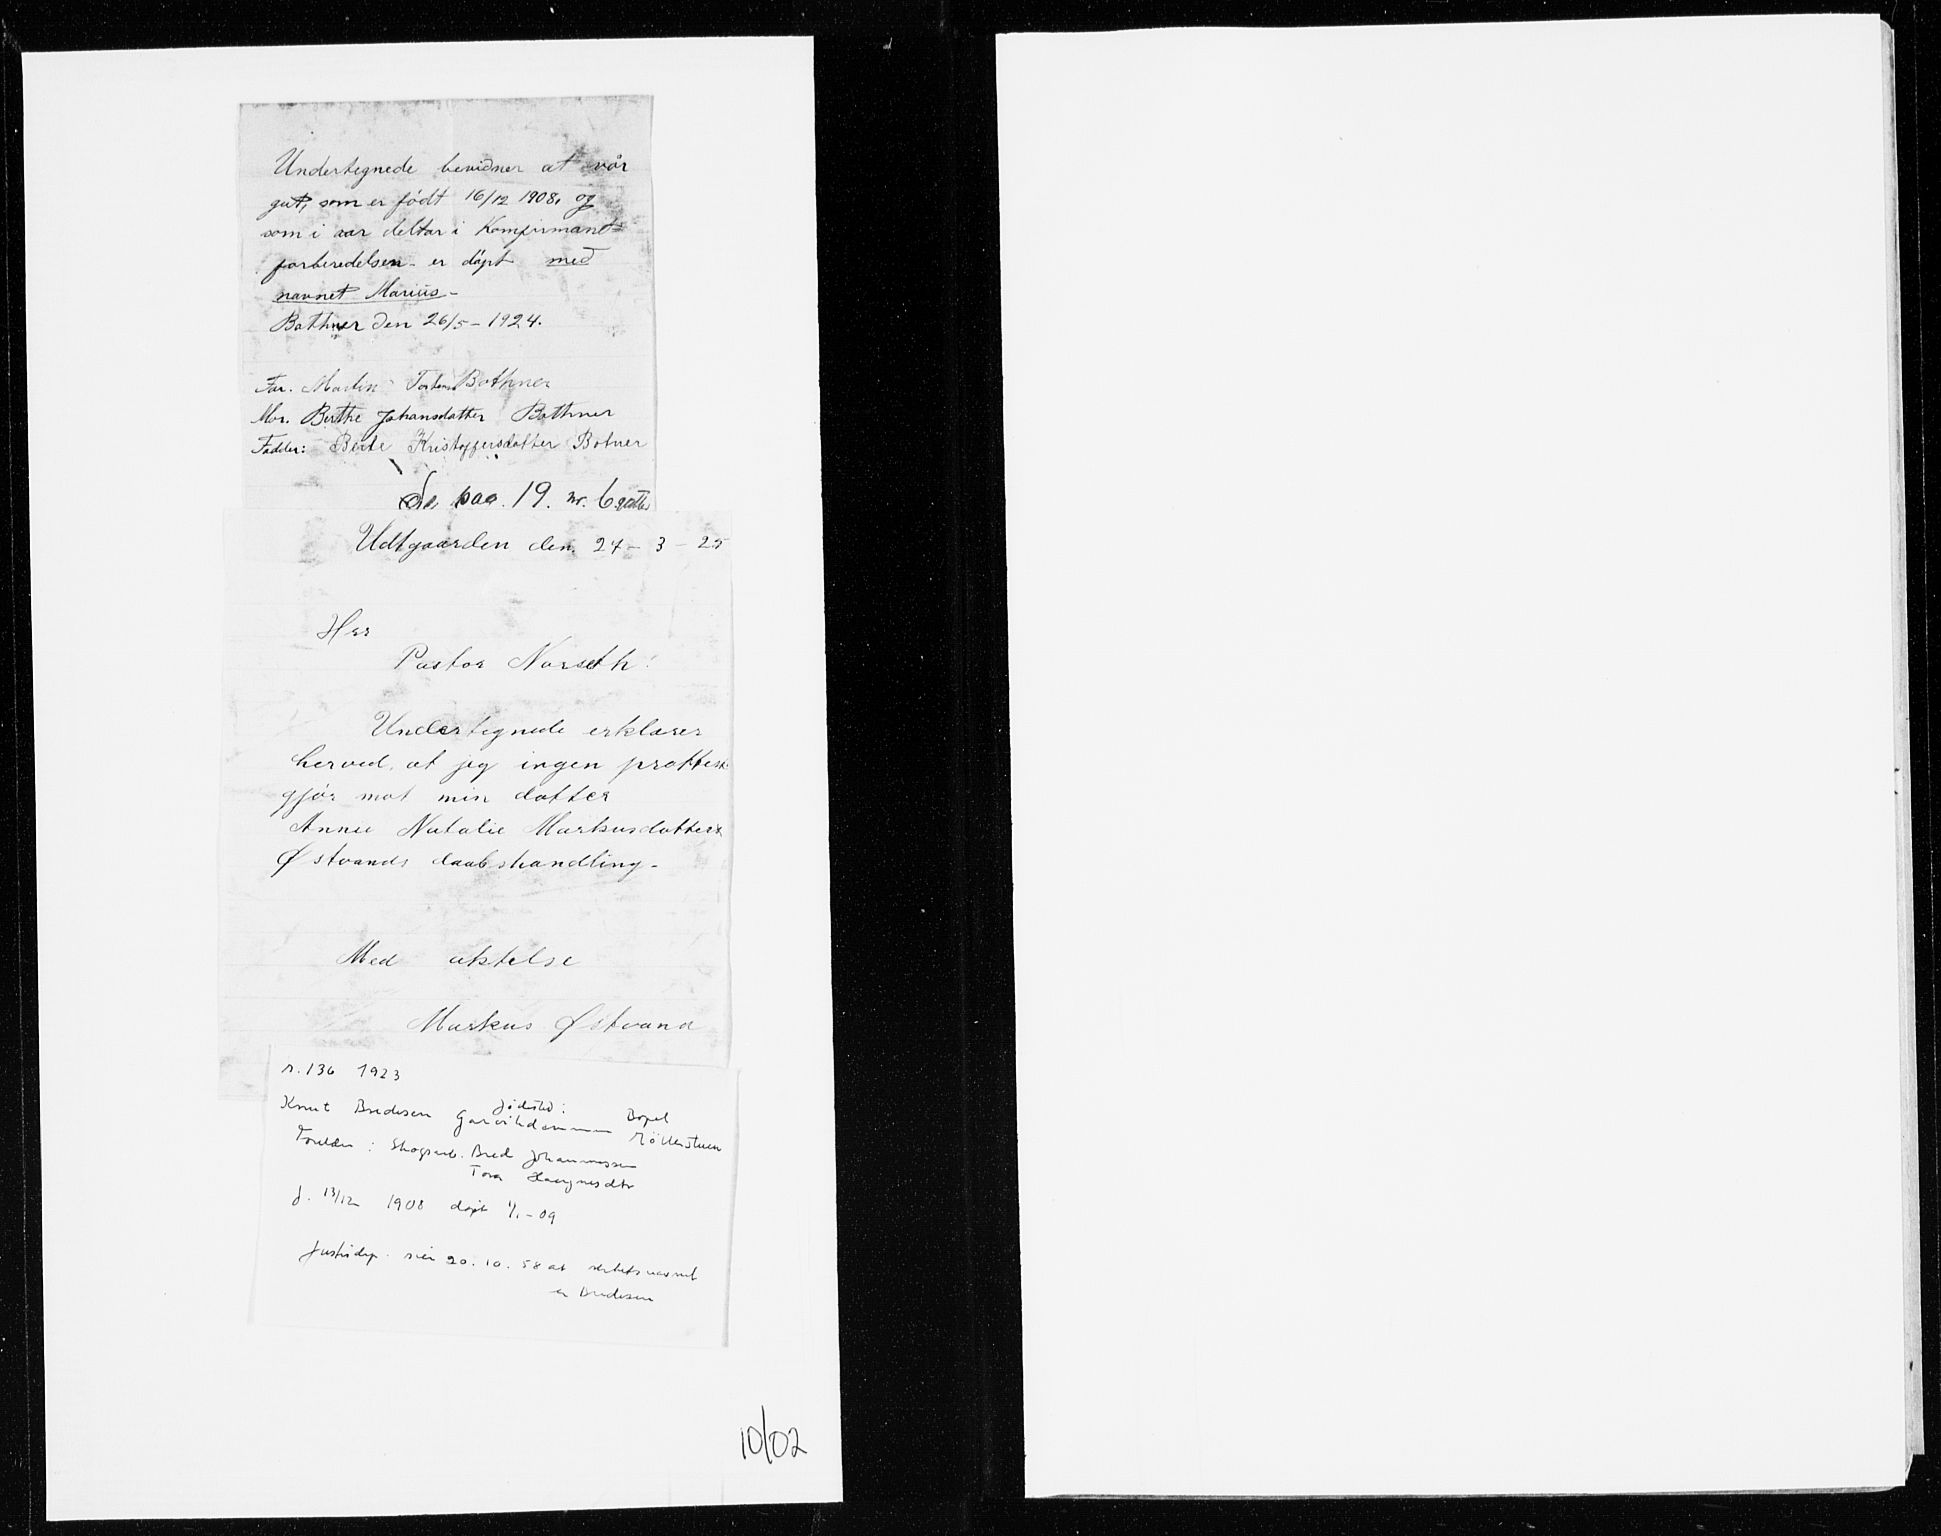 Undertegnede bevidner at vår
gut, som er født 16/12 1908, og
som i aar deltar i Konfirmand=
forberedelsen - er døpt med
navnet Marius -
Bothner den 26/5 - 1924.
Far. Martin Bothner
Mor. Berthe Johansdatter Bothner
Fadder: Berte Kristoffersdatter Botner
Se pag. 19. nr. 6 gutter
Udtgaarden den 24 - 3 - 25
Herr
Pastor Norseth!
Undertegnede erklærer
herved, at jeg ingen prottest
gjør mot min datter
Annie Natalie Markusdatter
Østvands daabshandling -
Med aktelse
Markus Østvand
n. 136 1923
fødested: Bopel
Knut Bredesen Garvikdammen Möllerstuen
Foreldre : Skogsarb. Bred Johannessen
Tora
f. 13/12 1908 døpt 1/1 - 09
Justisdep. sier 20.10.58 at slektsnavnet
er Bredesen
10/02